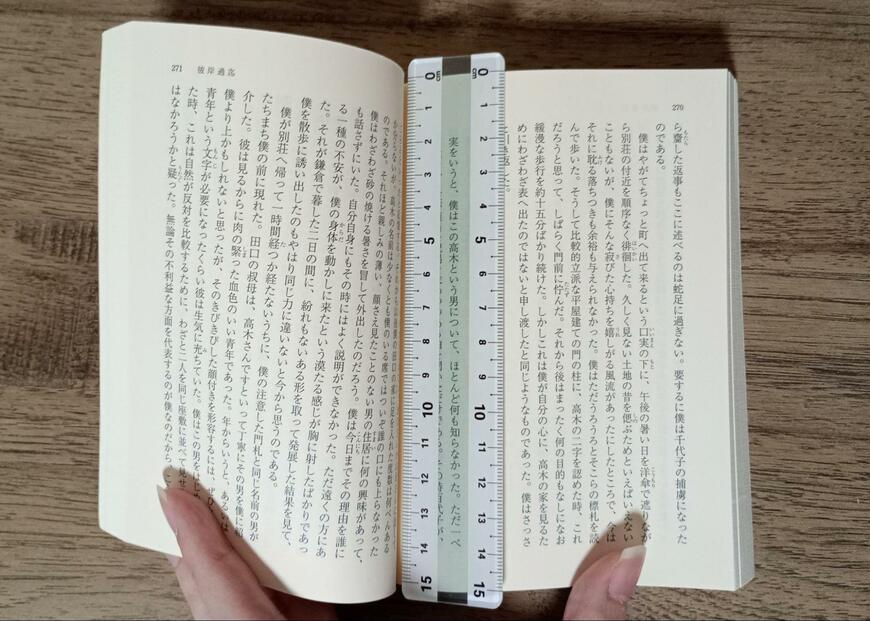 270
ら齎した返事もここに述べるのは蛇足に過ぎない。要するに僕は千代子の捕虜になった
のである。
僕はやがてちょっと町へ出て来るという口実の下に、午後の暑い日を洋傘で遮りなが
ら別荘の付近を順序なく徘徊した。久しく見ない土地の昔を偲ぶためといえばいえない
こともないが、僕にそんな寂びた心持ちを嬉しがる風流があったにしたところで、今は
それに耽る落ちつきも余裕も与えられなかった。僕はただうろうろとそこらの標札を読
んで歩いた。そうして比較的立派な平屋建ての門の柱に、高木の二字を認めた時、これ
だろうと思って、しばらく門前に佇んだ。それから後はまったく何の目的もなしになお
緩漫な歩行を約十五分ばかり続けた。しかしこれは僕が自分の心に、高木の家を見るた
めにわざわざ表へ出たのではないと申し渡したと同じようなものであった。僕はさっさ
と引き返した。
実をいうと、僕はこの高木という男について、ほとんど何も知らなかった。ただ一ぺ
271 彼岸過迄
のである。それほど親しみの薄い、顔さえ見たことのない男の住居に何の興味があって、
僕はわざわざ砂の焼ける暑さを冒して外出したのだろう。僕は今日までその理由を誰に
も話さずにいた。自分自身にもその時にはよく説明ができなかった。ただ遠くの方にあ
る一種の不安が、僕の身体を動かしに来たという漠たる感じが胸に射したばかりであっ
た。それが鎌倉で暮した二日の間に、紛れもないある形を取って発展した結果を見て、
僕を散歩に誘い出したのもやはり同じ力に違いないと今から思うのである。
僕が別荘へ帰って一時間経つか経たないうちに、僕の注意した門札と同じ名前の男が
たちまち僕の前に現れた。田口の叔母は、高木さんですといって丁寧にその男を僕に紹
介した。彼は見るからに肉の緊った血色のいい青年であった。年からいうと、あるいは
僕より上かもしれないと思ったが、そのきびきびした顔付きを形容するには、ぜひ
青年という文字が必要になったくらい彼は生気に充ちていた。僕はこの男を
た時、これは自然が反対を比較するために、わざと二人を同じ座敷に並べて
はなかろうかと疑った。無論その不利益な方面を代表するのが僕なのだから
0 cm 1 2 3 4 5 6 7 8 9 10 11 12 13 14 15
0 cm 1 2 3 4 5 6 7 8 9 10 11 12 13 14 15